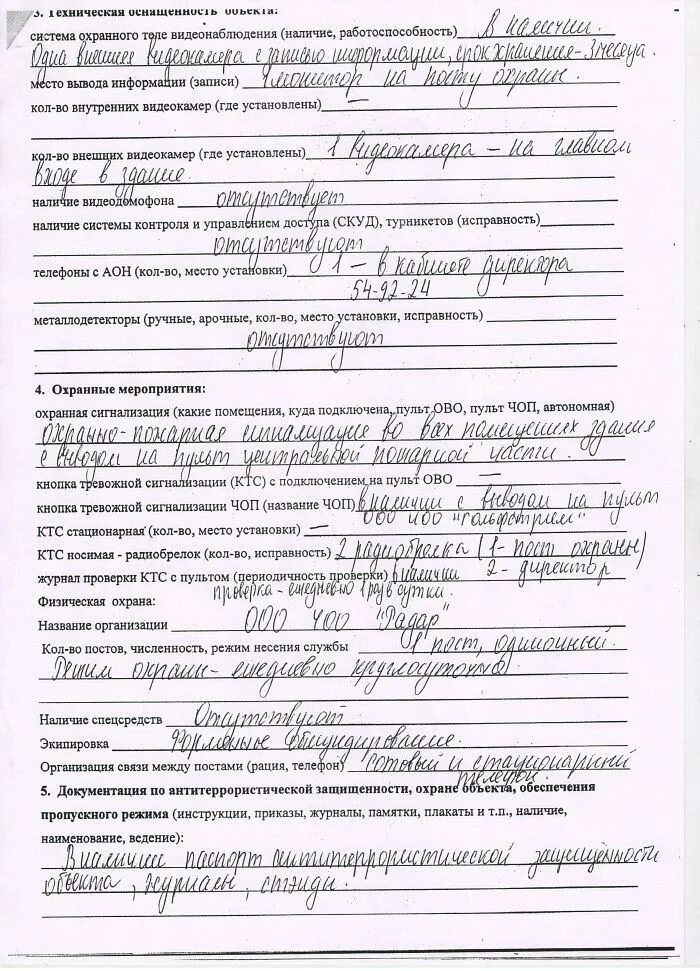 3. Техническая оснащенность объекта:
система охранного теле видеонаблюдения (наличие, работоспособность) В наличии.
Одна внешняя видеокамера с записью информации, срок хранения - 3 месяца.
место вывода информации (записи) 1 монитор на посту охраны.
кол-во внутренних видеокамер (где установлены) —
кол-во внешних видеокамер (где установлены) 1 видеокамера – на главном
входе в здание.
наличие видеодомофона отсутствует
наличие системы контроля и управлением доступа (СКУД), турникетов (исправность)
отсутствуют
телефоны с АОН (кол-во, место установки) 1 – в кабинете директора
54-92-24
металлодетекторы (ручные, арочные, кол-во, место установки, исправность)
отсутствуют
4. Охранные мероприятия:
охранная сигнализация (какие помещения, куда подключена, пульт ОВО, пульт ЧОП, автономная)
охранно-пожарная сигнализация во всех помещениях здания
с выводом на пульт центральной пожарной части.
кнопка тревожной сигнализации (КТС) с подключением на пульт ОВО —
кнопка тревожной сигнализации ЧОП (название ЧОП) в наличии с выводом на пульт
ООО ЧОО "Гольфстрим"
КТС стационарная (кол-во, место установки) —
КТС носимая - радиобрелок (кол-во, исправность) 2 радиобрелка (1 - пост охраны)
журнал проверки КТС с пультом (периодичность проверки) в наличии 2 - директор
проверка - ежедневно 1 раз в сутки.
Физическая охрана:
Название организации ООО ЧОО "Радар"
Кол-во постов, численность, режим несения службы 1 пост, одиночный.
Режим охраны - ежедневно круглосуточно.
Наличие спецсредств Отсутствуют.
Экипировка Форменное обмундирование.
Организация связи между постами (рация, телефон) сотовый и стационарный
телефон.
5. Документация по антитеррористической защищенности, охране объекта, обеспечения
пропускного режима (инструкции, приказы, журналы, памятки, плакаты и т.п., наличие,
наименование, ведение):
В наличии паспорт антитеррористической защищенности
объекта, журналы, стенды.